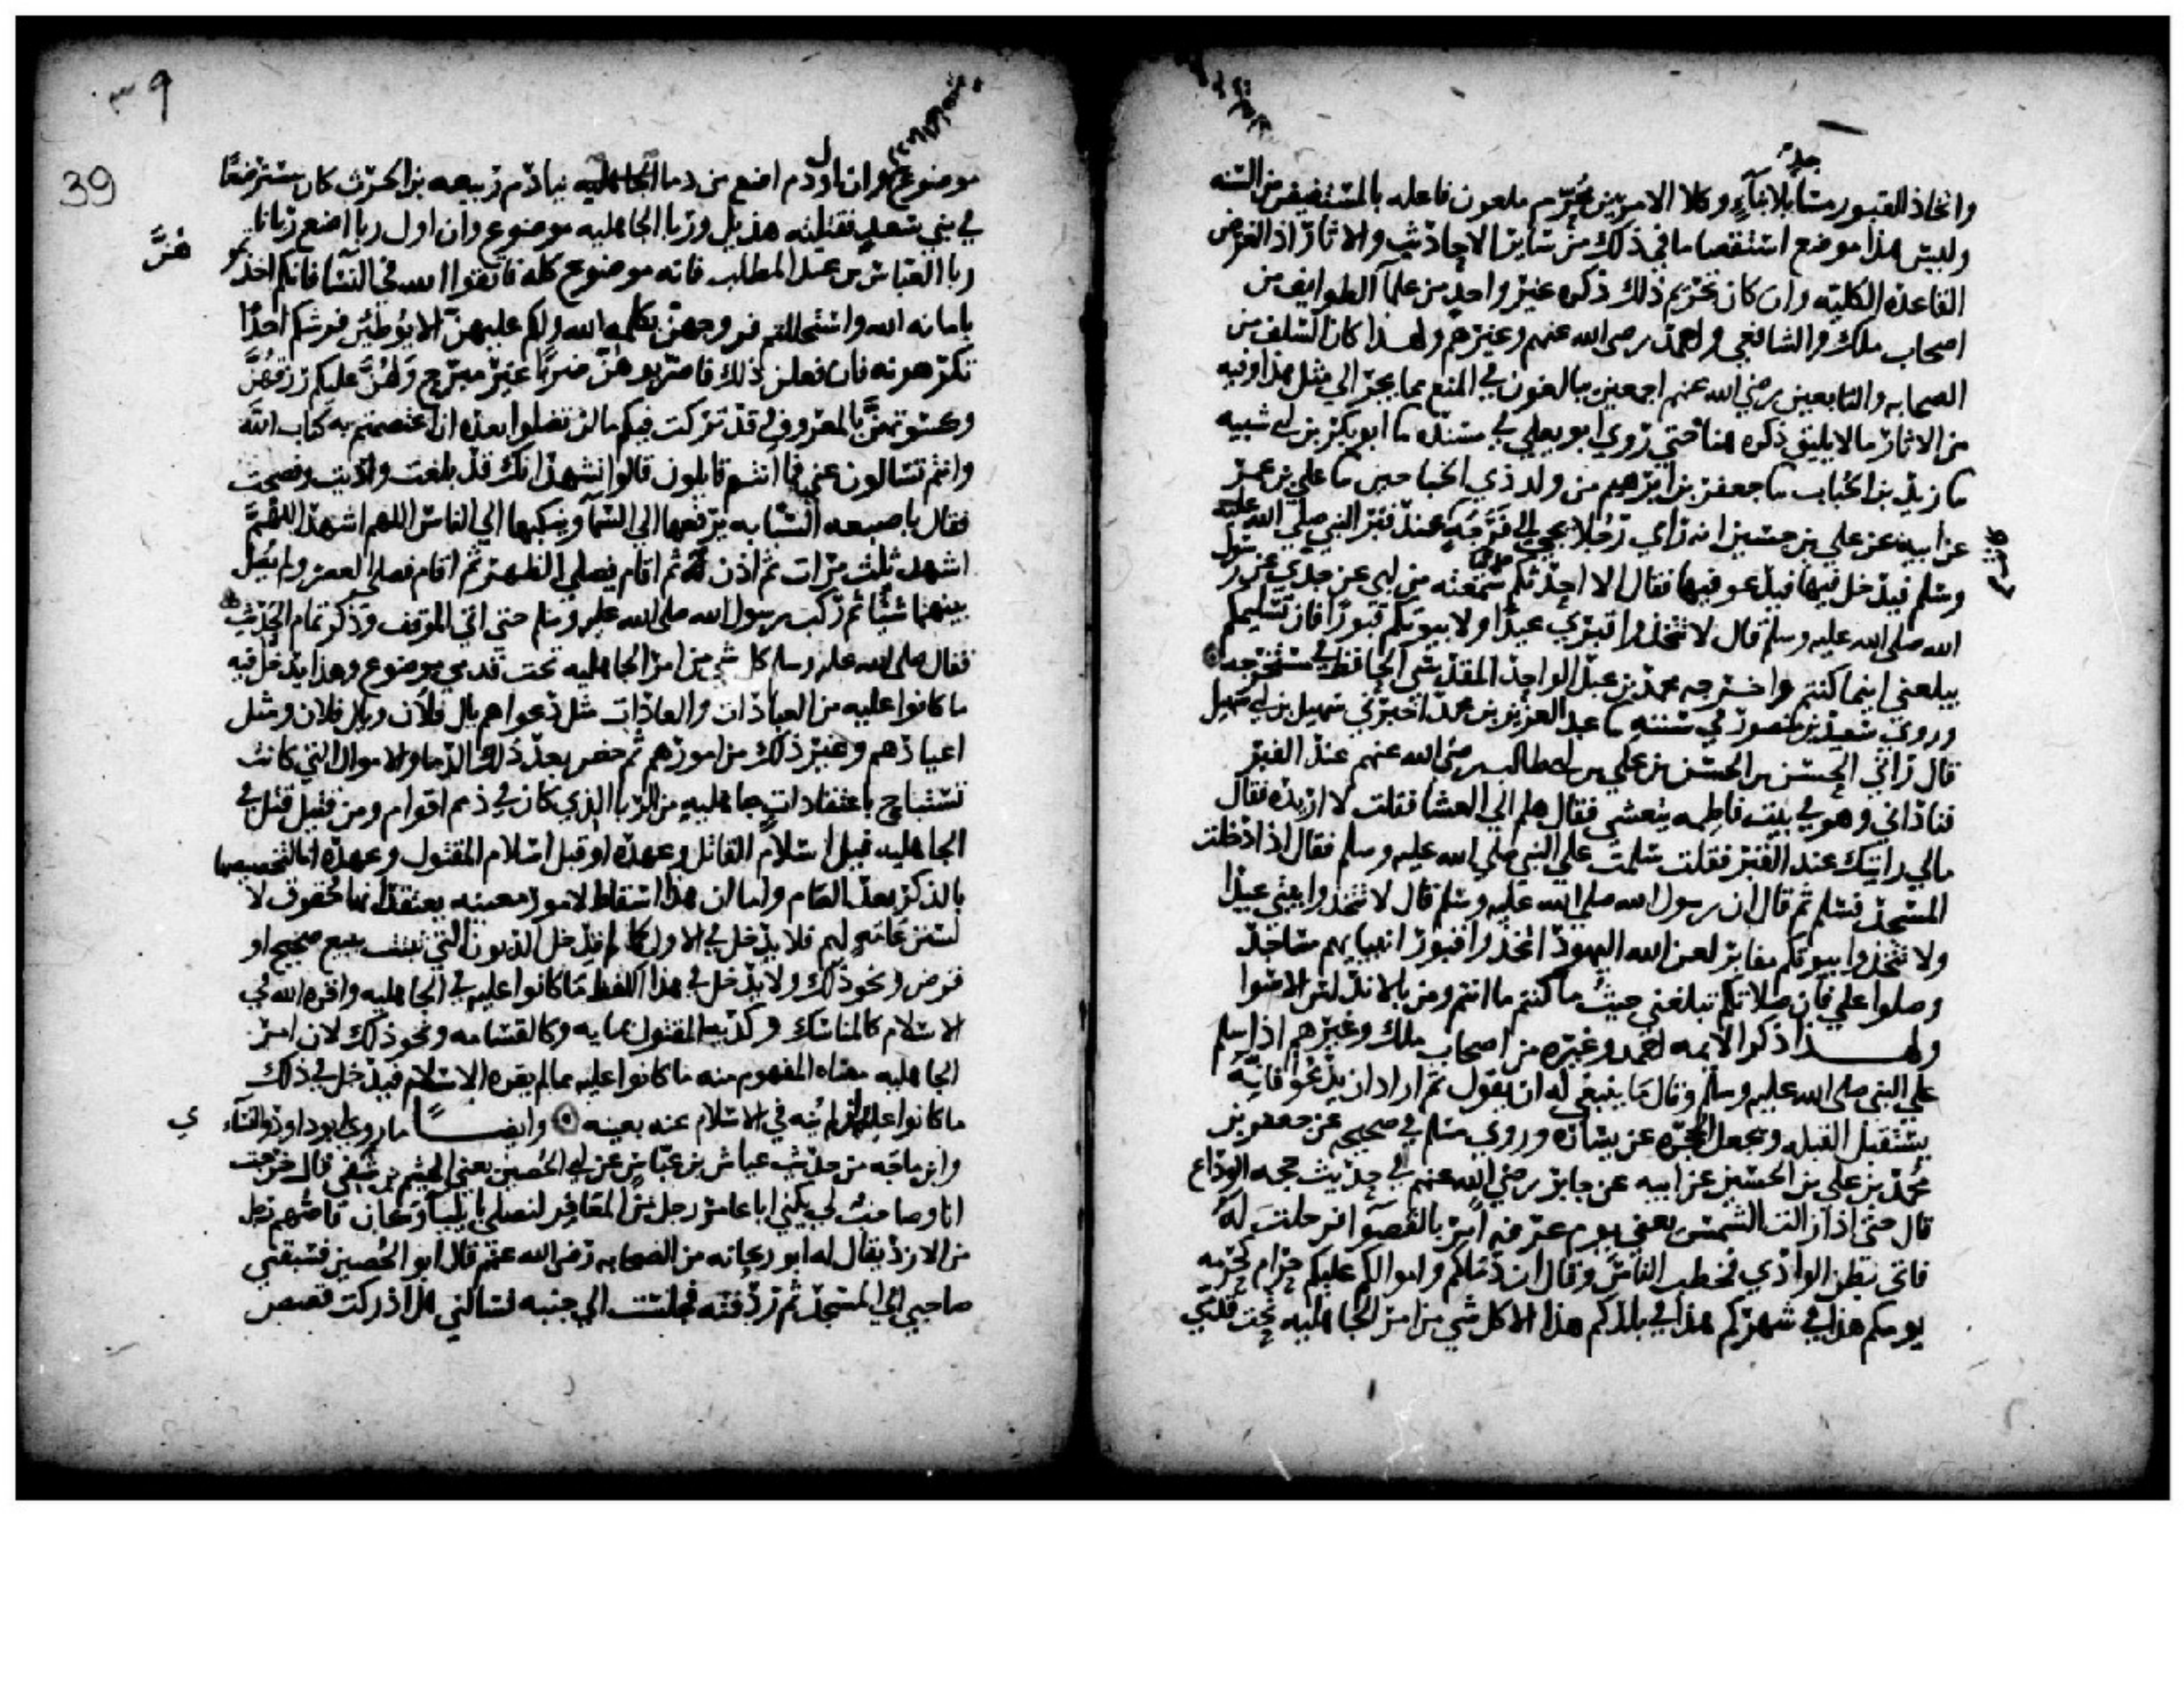 واتخاذ للقبور مساجد بلا بناء وكلا الامرين محرم ملعون فاعله بالمستفيض من السنه
وليس هذا موضع استقصا ما في ذلك من سائر الاحاديث والاثار اذ الغرض
القاعده الكليه وان كان تحريم ذلك ذكره غير واحد من علما الطوايف من
اصحاب ملك والشافعي واحمد رضي الله عنهم وغيرهم ولهذا كان السلف من
الصحابه والتابعين رضي الله عنهم اجمعين يبالغون في المنع مما يجر الي مثل هذا وفيه
من الاثار ما لا يليق ذكره هنا حتي روي ابو يعلي في مسنده ما ابو بكر بن ابي شيبه
ما زيد بن الحباب ما جعفر بن ابرهيم من ولد ذي الجناحين ما علي بن عمر
عن ابيه عن علي بن حسين انه راي رجلا يجي الي فرجه عند قبر النبي صلي الله عليه
وسلم فيدخل فيها فيدعو فيها فقال الا احدثكم سمعته من ابي عن جدي عن رسول
الله صلي الله عليه وسلم قال لا تتخذوا قبري عيدا ولا بيوتكم قبورا فان تسليمكم
يبلغني اينما كنتم واخرجه محمد بن عبد الواحد المقدسي الحافظ في مستخرجه
وروي سعيد بن منصور في سننه ما عبد العزيز بن محمد اخبرني سهيل بن ابي سهيل
قال راني الحسن بن الحسن بن علي بن ابي طالب رضي الله عنهم عند القبر
فناداني وهو في بيت فاطمه يتعشي فقال هلم الي العشا فقلت لا اريده فقال
مالي رايتك عند القبر فقلت سلمت علي النبي صلي الله عليه وسلم فقال اذا دخلت
المسجد فسلم ثم قال ان رسول الله صلي الله عليه وسلم قال لا تتخذوا بيتي عيدا
ولا تتخذوا بيوتكم مقابر لعن الله اليهود اتخذوا قبور انبيايهم مساجد
وصلوا علي فان صلاتكم تبلغني حيث ما كنتم ما انتم ومن بالاندلس الا سوا
ولهذا ذكر الايمه احمد وغيره من اصحاب ملك وغيرهم اذا سلم
علي النبي صلي الله عليه وسلم وقال ما ينبغي له ان يقول ثم اراد ان يدعو فانه
يستقبل القبله ويجعل الحجره عن يساره وروي مسلم في صحيحه عن جعفر بن
محمد بن علي بن الحسين عن ابيه عن جابر رضي الله عنهم في حديث حجه الوداع
قال حتي اذا زالت الشمس يعني يوم عرفه امر بالقصوا فرحلت له
فاتي بطن الوادي فخطب الناس وقال ان دماكم واموالكم عليكم حرام كحرمه
يومكم هذا في شهركم هذا في بلدكم هذا الا كل شي من امر الجاهليه تحت قدمي
٣٩
39
موضوع وان اول دم اضع من دما الجاهليه نيا دم ربيعه بن الحرث كان مسترضعا
في بني سعد فقتلته هذيل وربا الجاهليه موضوع وان اول ربا اضع ربانا
ربا العباس بن عبد المطلب فانه موضوع كله فاتقوا الله في النسا فانكم اخذتموهن
بامانه الله واستحللتم فروجهن بكلمه الله ولكم عليهن الا يوطين فرشكم احدا
تكرهونه فان فعلن ذلك فاضربوهن ضربا غير مبرح ولهن عليكم رزقهن
وكسوتهن بالمعروف قد تركت فيكم ما لن تضلوا بعده ان اعتصمتم به كتاب الله
وانتم تسالون عني فما انتم قايلون قالوا نشهد انك قد بلغت واديت ونصحت
فقال باصبعه السبابه يرفعها الي السما وينكبها الي الناس اللهم اشهد اللهم
اشهد ثلث مرات ثم اذن ثم اقام فصلي الظهر ثم اقام فصلي العصر ولم يصل
بينهما شيا ثم ركب رسول الله صلي الله عليه وسلم حتي اتي الموقف وذكر تمام الحديث
فقال صلي الله عليه وسلم كل شي من امر الجاهليه تحت قدمي موضوع وهذا يدخل فيه
ما كانوا عليه من العبادات والعادات مثل دعواهم يال فلان ويال فلان ومثل
اعيادهم وغير ذلك من امورهم ثم خص بعد ذلك الدما والاموال التي كانت
تستباح باعتقادات جاهليه من الربا الذي كان في ذمم اقوام ومن قتيل قتل في
الجاهليه قبل اسلام القاتل وعهده او قبل اسلام المقتول وعهده اما لتخصيصها
بالذكر بعد العام واما لان هذا اسقاط لامور معينه يعتقد انها حقوق لا
لسنن عامه لهم فلا يدخل في الاول كما لم يدخل الديون التي تثبت ببيع صحيح او
قرض ونحو ذلك ولا يدخل في هذا اللفظ ما كانوا عليه في الجاهليه واقره الله في
الاسلام كالمناسك وكديه المقتول بمايه وكالقسامه ونحو ذلك لان امر
الجاهليه معناه المفهوم منه ما كانوا عليه مما لم يقره الاسلام فيدخل في ذلك
ما كانوا عليه وان لم ينه في الاسلام عنه بعينه وايضا ما روي ابو داود والنسائي
وابن ماجه من حديث عياش بن عباس عن ابي الحصين يعني الهيثم بن شفي قال خرجت
انا وصاحب لي يكني ابا عامر رجل من المعافر لنصلي بايليا وكان قاصهم رجل
من الازد يقال له ابو ريحانه من الصحابه رضي الله عنهم قال ابو الحصين فسبقني
صاحبي الي المسجد ثم ردفته فجلست الي جنبه فسالني هل ادركت قصص